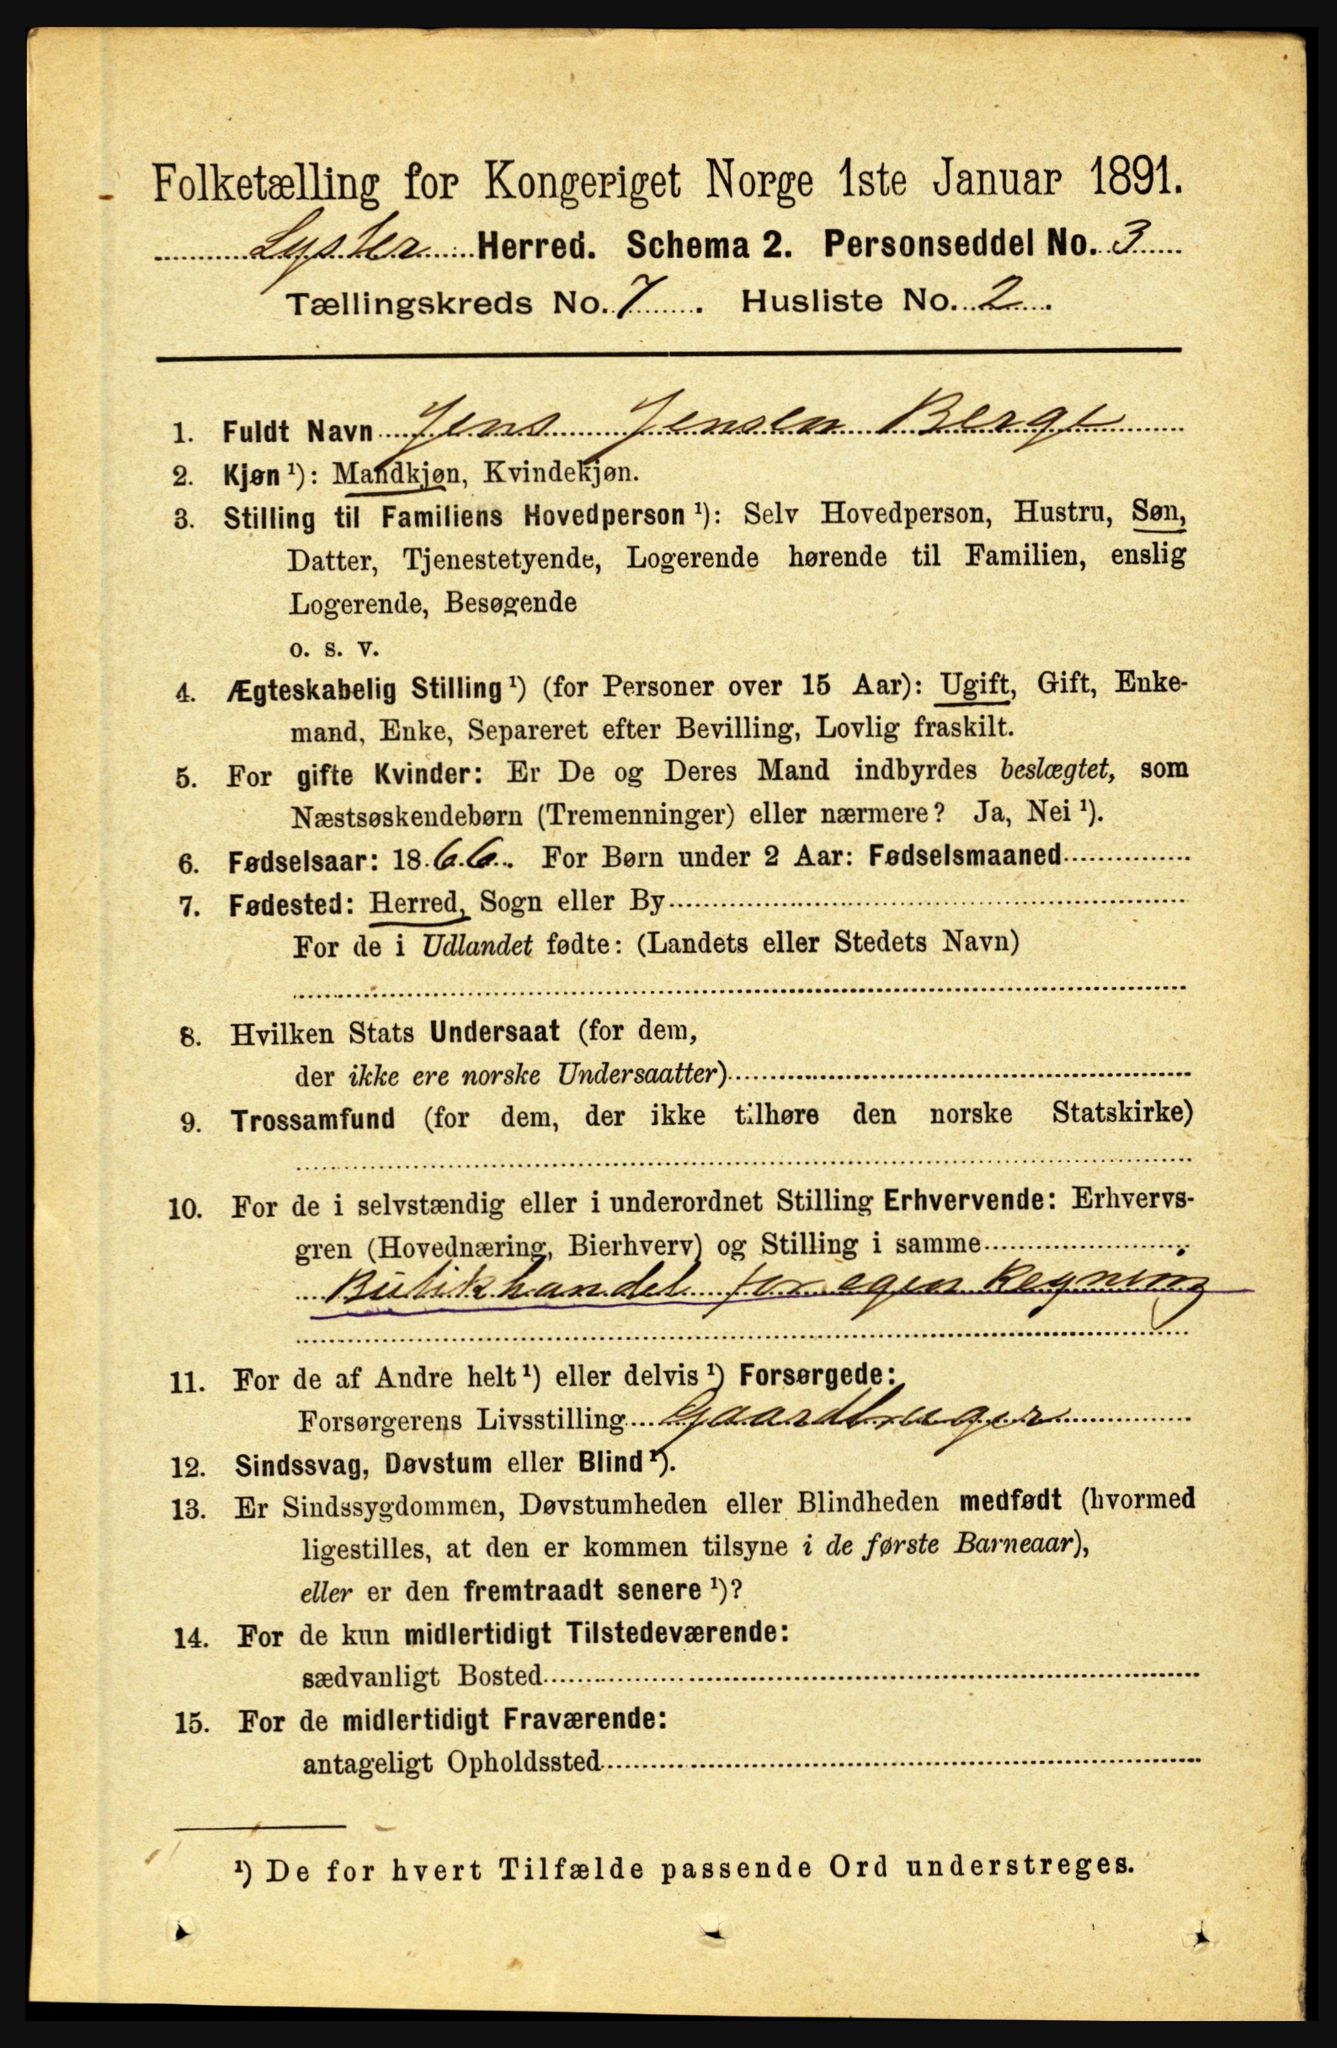 Folketælling for Kongeriget Norge 1ste Januar 1891.
Lyster Herred. Schema 2. Personseddel No. 3
Tællingskreds No. 7. Husliste No. 2.
1. Fuldt Navn Jens Jensen Berge
2. Kjøn¹): Mandkjøn, Kvindekjøn.
3. Stilling til Familiens Hovedperson¹): Selv Hovedperson, Hustru, Søn,
Datter, Tjenestetyende, Logerende hørende til Familien, enslig
Logerende, Besøgende
o. s. v.
4. Ægteskabelig Stilling¹) (for Personer over 15 Aar): Ugift, Gift, Enke-
mand, Enke, Separeret efter Bevilling, Lovlig fraskilt.
5. For gifte Kvinder: Er De og Deres Mand indbyrdes beslægtet, som
Næstsøskendebørn (Tremenninger) eller nærmere? Ja, Nei¹).
6. Fødselsaar: 1866. For Børn under 2 Aar: Fødselsmaaned
7. Fødested: Herred, Sogn eller By
For de i Udlandet fødte: (Landets eller Stedets Navn)
8. Hvilken Stats Undersaat (for dem,
der ikke ere norske Undersaatter)
9. Trossamfund (for dem, der ikke tilhøre den norske Statskirke)
10. For de i selvstændig eller i underordnet Stilling Erhvervende: Erhvervs-
gren (Hovednæring, Bierhverv) og Stilling i samme
Butikhandel for egen Regning
11. For de af Andre helt¹) eller delvis¹) Forsørgede:
Forsørgerens Livsstilling Gaardbruger
12. Sindssvag, Døvstum eller Blind¹).
13. Er Sindssygdommen, Døvstumheden eller Blindheden medfødt (hvormed
ligestilles, at den er kommen tilsyne i de første Barneaar),
eller er den fremtraadt senere¹)?
14. For de kun midlertidigt Tilstedeværende:
sædvanligt Bosted
15. For de midlertidigt Fraværende:
antageligt Opholdssted
¹) De for hvert Tilfælde passende Ord understreges.